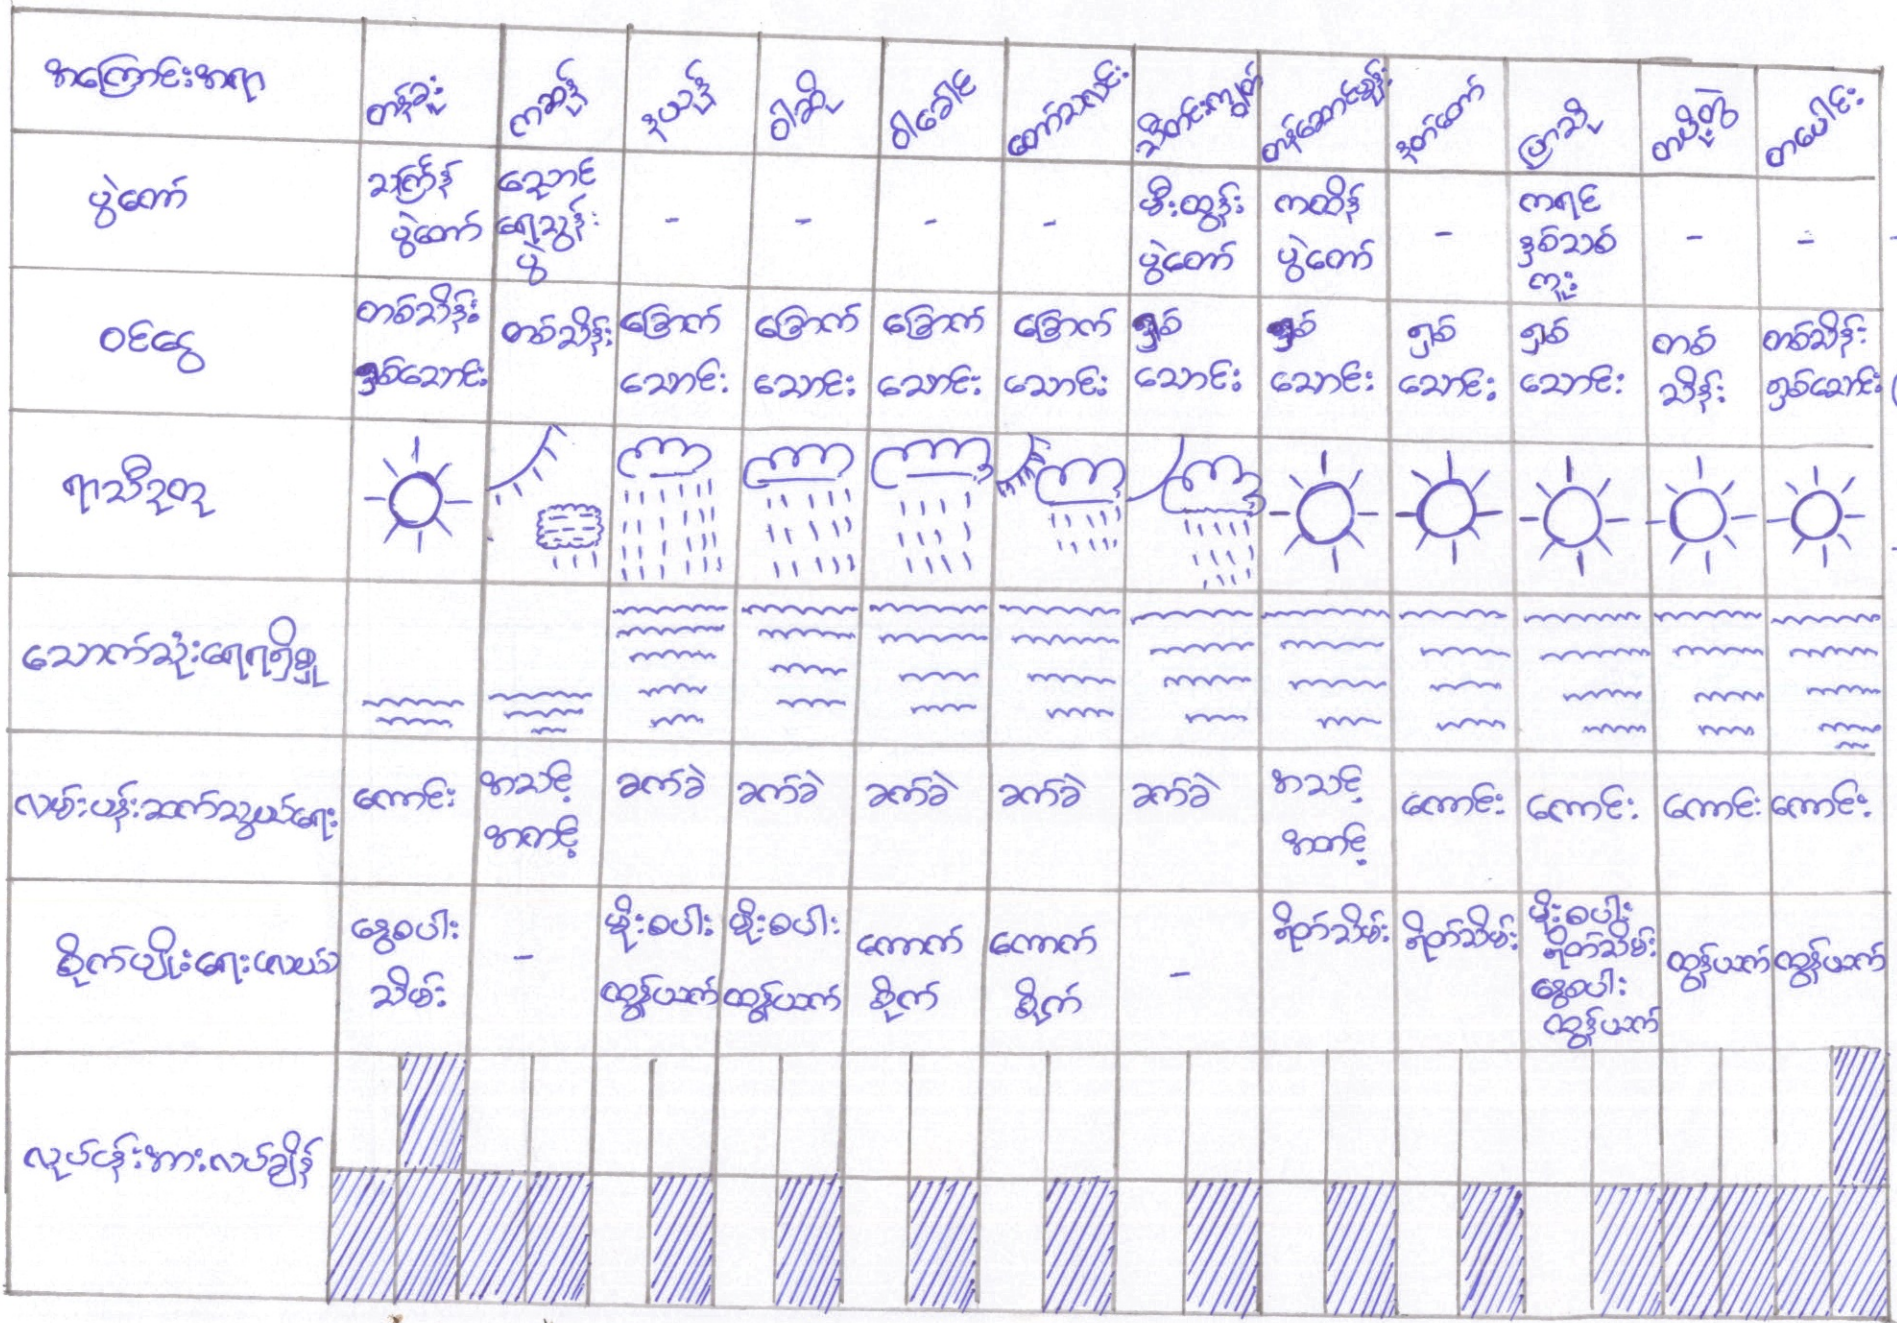 အကြောင်းအရာ
တန်ခူး
ကဆုန်
နယုန်
ဝါဆို
ဝါခေါင်
တော်သလင်း
သီတင်းကျွတ်
တန်ဆောင်မုန်း
နတ်တော်
ပြာသို
တပို့တွဲ
တပေါင်း
ပွဲတော်
သင်္ကြန်
ပွဲတော်
ညောင်
ရေသွန်း
ပွဲ
-
-
-
-
မီးထွန်း
ပွဲတော်
ကထိန်
ပွဲတော်
-
ကရင်
နှစ်သစ်
ကူး
-
-
ဝင်ငွေ
တစ်သိန်း
ရှစ်သောင်း
တစ်သိန်း
ခြောက်
သောင်း
ခြောက်
သောင်း
ခြောက်
သောင်း
ခြောက်
သောင်း
ရှစ်
သောင်း
ရှစ်
သောင်း
ရှစ်
သောင်း
ရှစ်
သောင်း
တစ်
သိန်း
တစ်သိန်း
ရှစ်သောင်း
ရာသီဥတု
သောက်သုံးရေရရှိမှု
လမ်းပန်းဆက်သွယ်ရေး
ကောင်း
အသင့်
အတင့်
ခက်ခဲ
ခက်ခဲ
ခက်ခဲ
ခက်ခဲ
ခက်ခဲ
အသင့်
အတင့်
ကောင်း
ကောင်း
ကောင်း
ကောင်း
စိုက်ပျိုးရေးလယ်ယာ
နွေစပါး
သိမ်း
-
မိုးစပါး
ထွန်ယက်
မိုးစပါး
ထွန်ယက်
ကောက်
စိုက်
ကောက်
စိုက်
-
ရိတ်သိမ်း
ရိတ်သိမ်း
မိုးစပါး
ရိတ်သိမ်း
နွေစပါး
ထွန်ယက်
ထွန်ယက်
ထွန်ယက်
လုပ်ငန်းအားလပ်ချိန်